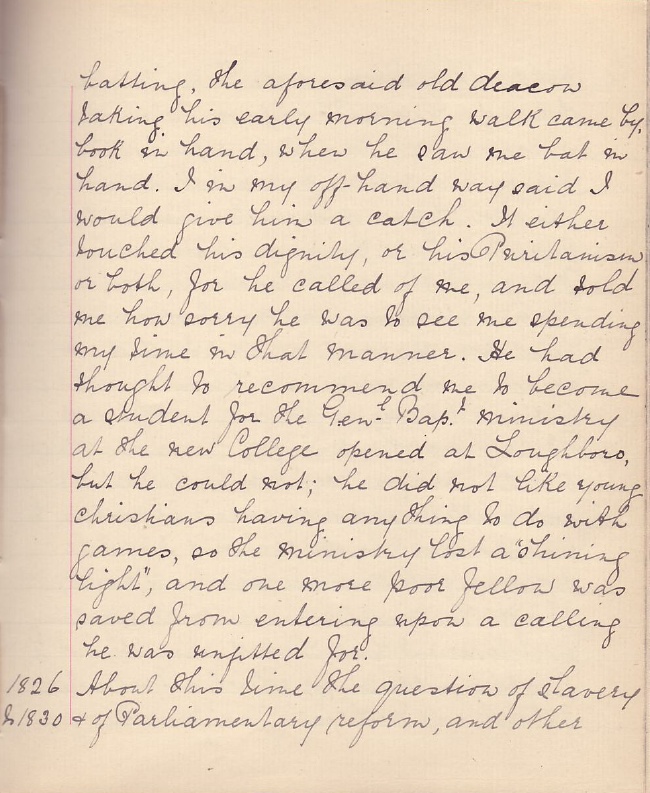 batting, the aforesaid old deacon
taking his early morning walk came by,
book in hand, when he saw me bat in
hand. I in my off-hand way said I
would give him a catch. It either
touched his dignity, or his Puritanism
or both, for he called of me, and told
me how sorry he was to see me spending
my time in that manner. He had
thought to recommend me to become
a student for the Genl Bapt ministry
at the new College opened at Loughboro,
but he could not; he did not like young
christians having anything to do with
games, so the ministry lost a "shining
light", and one more poor fellow was
saved from entering upon a calling
he was unfitted for.
1826 About this time the question of slavery
to 1830 & of Parliamentary reform, and other